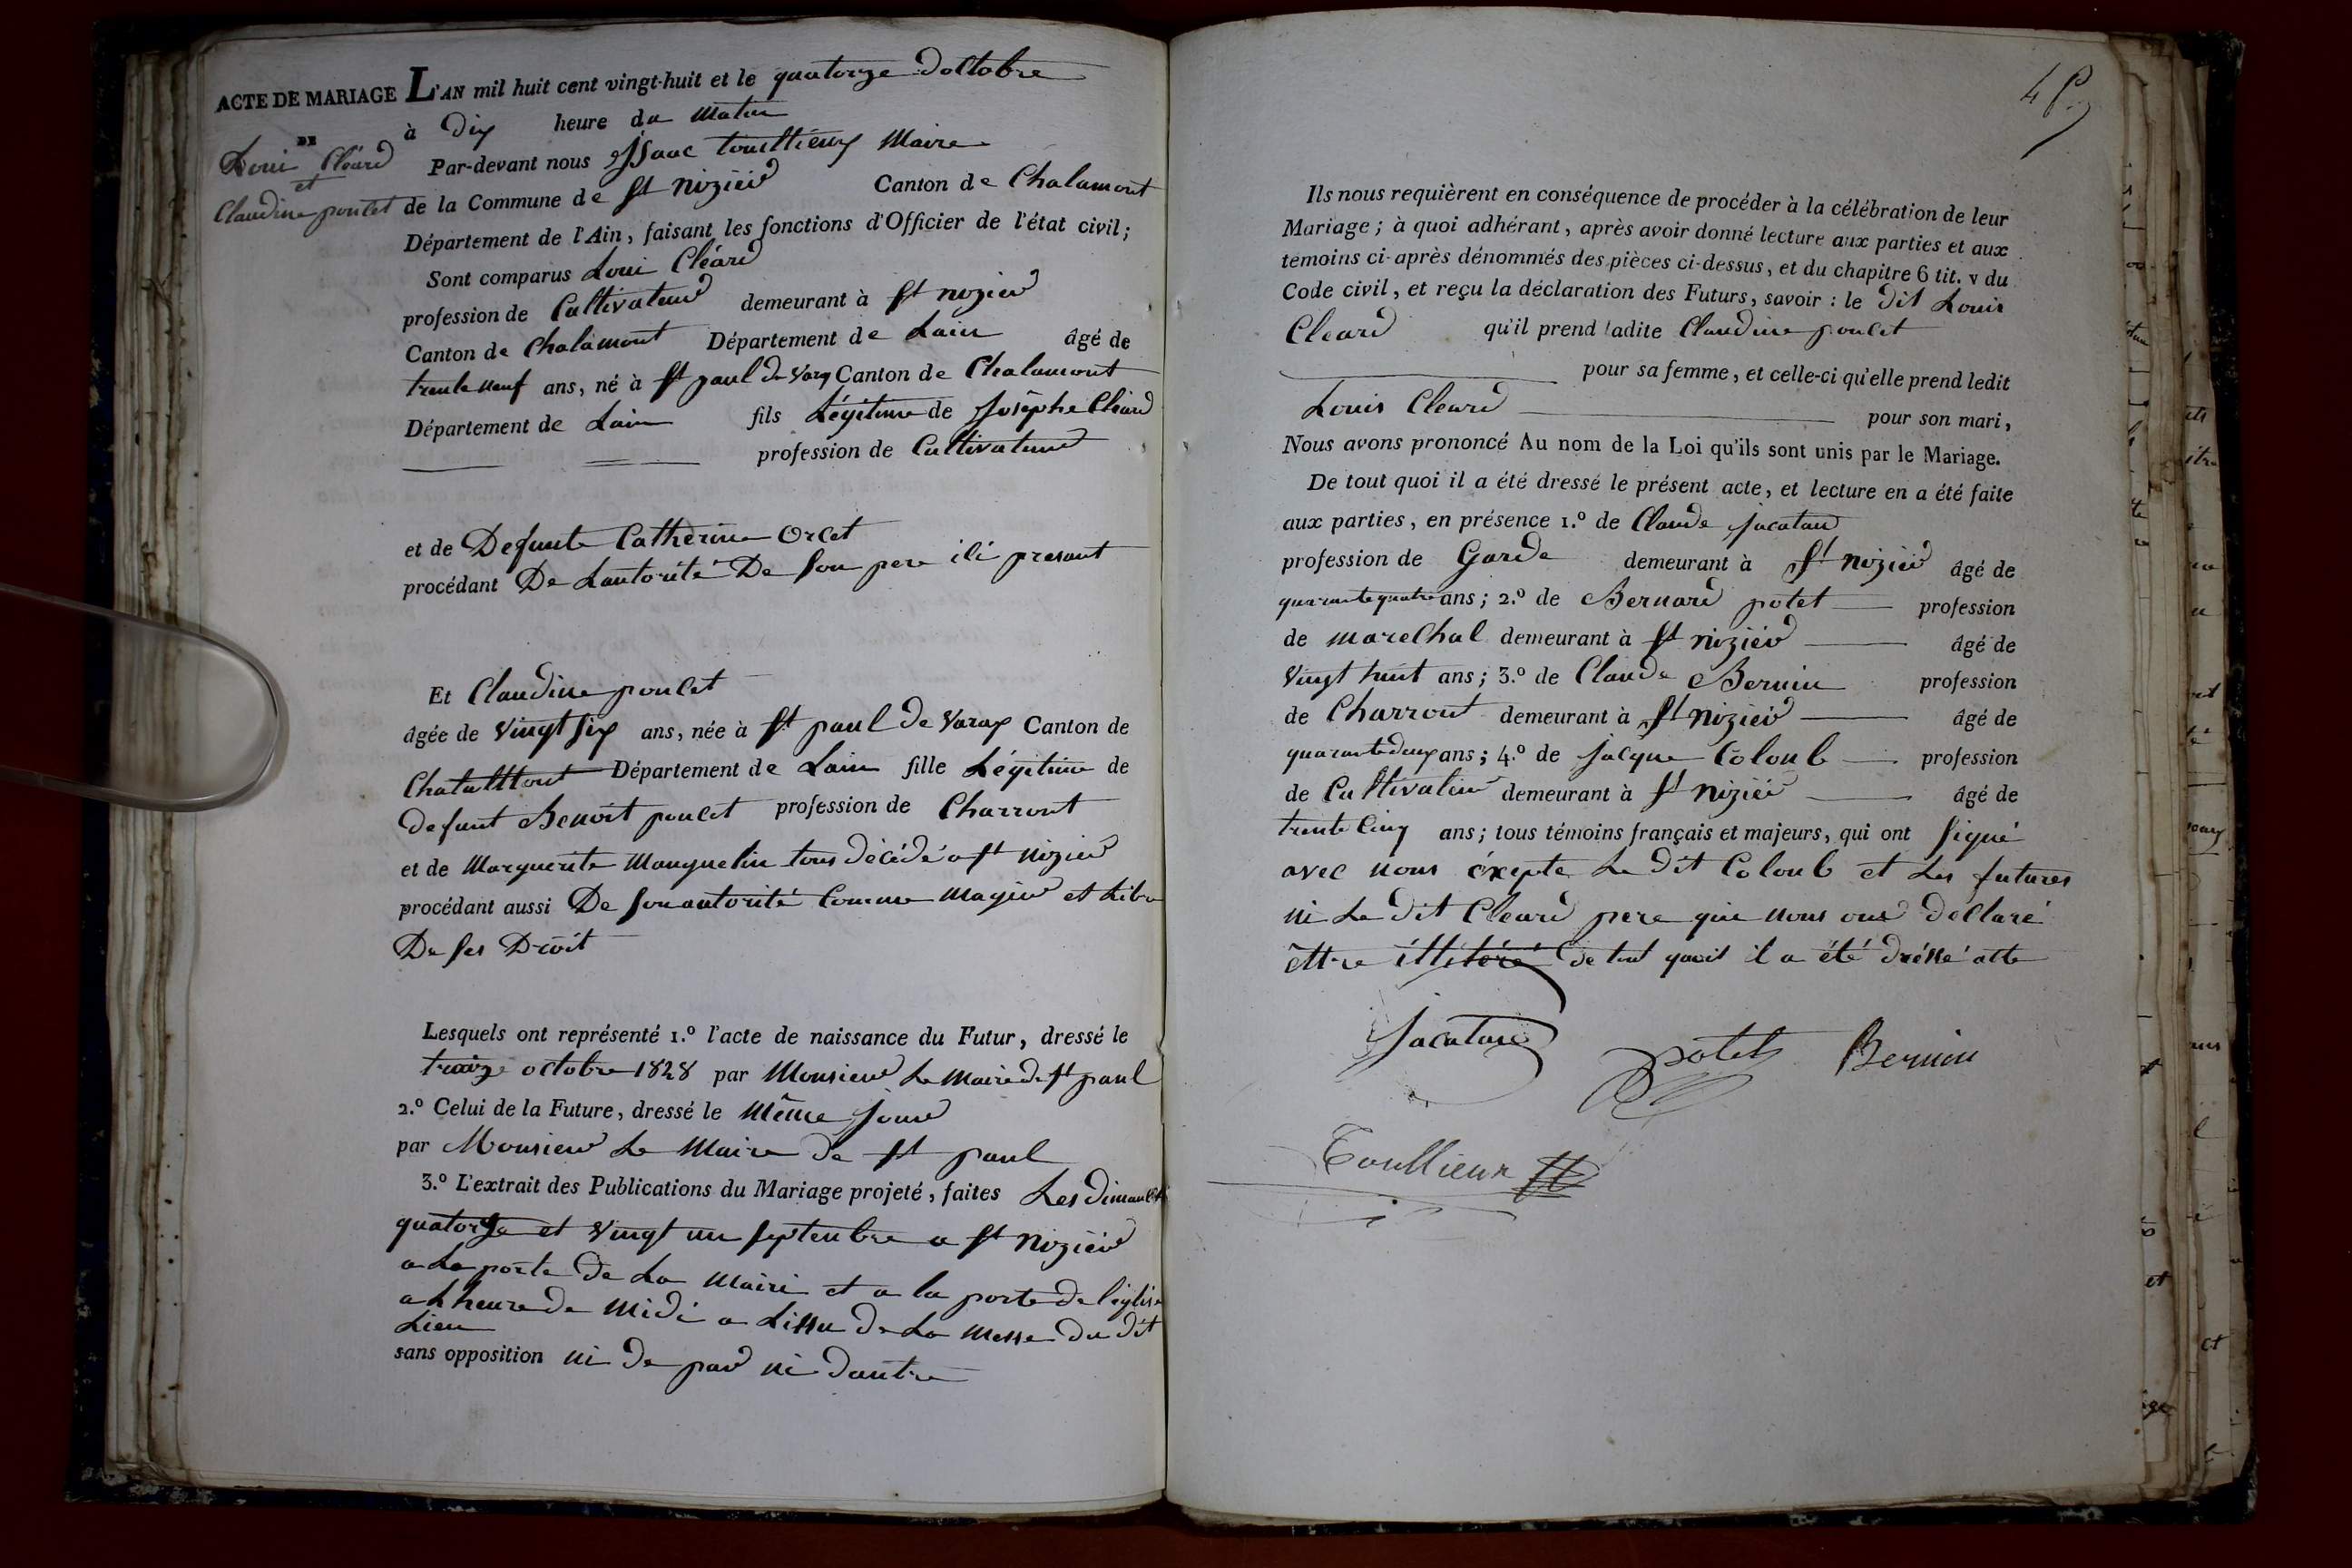 ACTE DE MARIAGE L'AN mil huit cent vingt-huit et le quatorze doctobre
DE
à dix heure du matin
Loui Cléard
Par-devant nous Isaac touillieux Maire
et
Claudine poulet
de la Commune de St niziéd Canton de Chalamont
Département de l'Ain, faisant les fonctions d'Officier de l'état civil;
Sont comparus Loui Cléard
profession de Cultivateur demeurant à St nizier
Canton de Chalamont Département de Lain âgé de
trente neuf ans, né à St paul de Varax Canton de Chalamont
Département de Lain fils Légitime de Josephe Cléard
profession de Cultivateur
et de Defunte Catherine Orcet
procédant De Lautorité De Son pere ici presant
Et Claudine poulet
âgée de vingt six ans, née à St paul de Varax Canton de
Département de Lain fille Légitime de
defunt Benoit poulet profession de Charront
et de Marguerite Manguelin tous décédé a St nizier
procédant aussi De Son autorité Comme Magieur et Libre
De Ses Droit
Lesquels ont représenté 1.º l'acte de naissance du Futur, dressé le
traize octobre 1828 par Monsieur Le Maire de St paul
2.º Celui de la Future, dressé le même Jour
par Monsieur Le Maire de St paul
3.º L'extrait des Publications du Mariage projeté, faites Les dimanche
quatorze et vingt un septenbre a St niziér
a La porte de La Mairi et a la porte de l'église
a Lheure de Midi a Lissu de La Messe du dit
Lieu
sans opposition ni de pard ni dautre
Ils nous requièrent en conséquence de procéder à la célébration de leur
Mariage; à quoi adhérant, après avoir donné lecture aux parties et aux
témoins ci-après dénommés des pièces ci-dessus, et du chapitre 6 tit. v du
Code civil, et reçu la déclaration des Futurs, savoir : le dit Louis
Cleard qu'il prend ladite Claudine poulet
pour sa femme, et celle-ci qu'elle prend ledit
Louis Cleard pour son mari,
Nous avons prononcé Au nom de la Loi qu'ils sont unis par le Mariage.
De tout quoi il a été dressé le présent acte, et lecture en a été faite
aux parties, en présence 1.º de Claude Jacatau
profession de Garde demeurant à St niziér âgé de
quarante quatre ans; 2.º de Bernard potet profession
de marechal demeurant à St niziér âgé de
vingt huit ans; 3.º de Claude Bernin profession
de Charront demeurant à St niziér âgé de
quarante deux ans; 4.º de Jacque Colonb profession
de Cultivateur demeurant à St niziér âgé de
trente cinq ans; tous témoins français et majeurs, qui ont Signé
avec nous éxepte Le dit Colonb et Les futures
ni Le dit Cleard pere qui nous ons déclaré
ettre illitéré de tout quoit il a été dréssé atte
Jacatau
potet Bernin
Toullieux